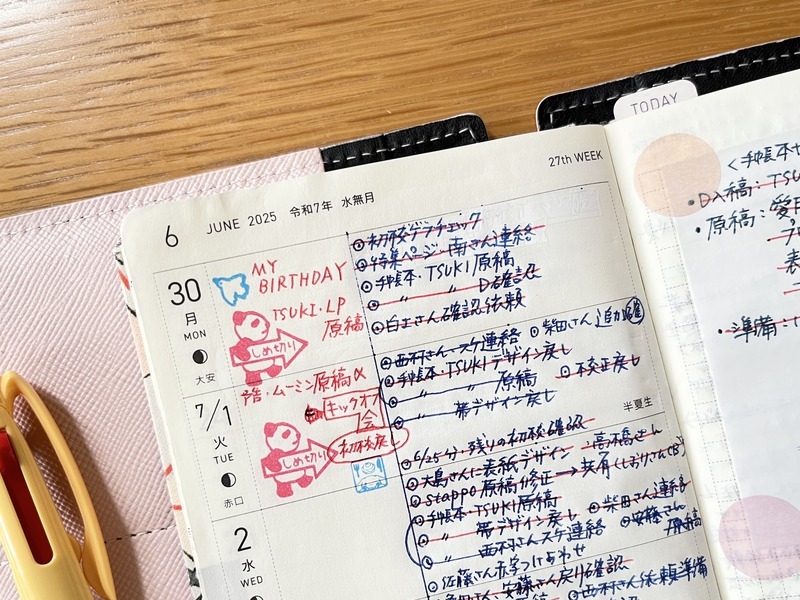 TODAY
27th WEEK
6 JUNE 2025 令和7年 水無月
30
月
MON
大安
MY
BIRTHDAY
TSUKI・LP
原稿
しめ切り
初校ゲラチェック
特集ページ・南さん連絡
手帳本・TSUKI原稿
〃 〃 D確認
白玉さん確認依頼
7/1
火
TUE
赤口
半夏生
ムーミン原稿
キックオフ
会
初校戻し
しめ切り
西村さんスケ連絡
柴田さん追加
手帳本・TSUKIデザイン戻し
〃 〃 原稿
〃 帯デザイン戻し
2
水
WED
6/25分・残りの初校確認
高橋さん
大島さんに表紙デザイン
stappo原稿修正→共有
手帳本・TSUKI原稿
柴田さん連絡
〃 帯デザイン戻し
安藤さん
原稿
〃 西村さんスケ連絡
佐藤さん赤字つけあわせ
安藤さん戻り確認
西村さん依頼準備
＜手帳本
・D入稿：TSU
・原稿：愛用
プ
表
・準備：